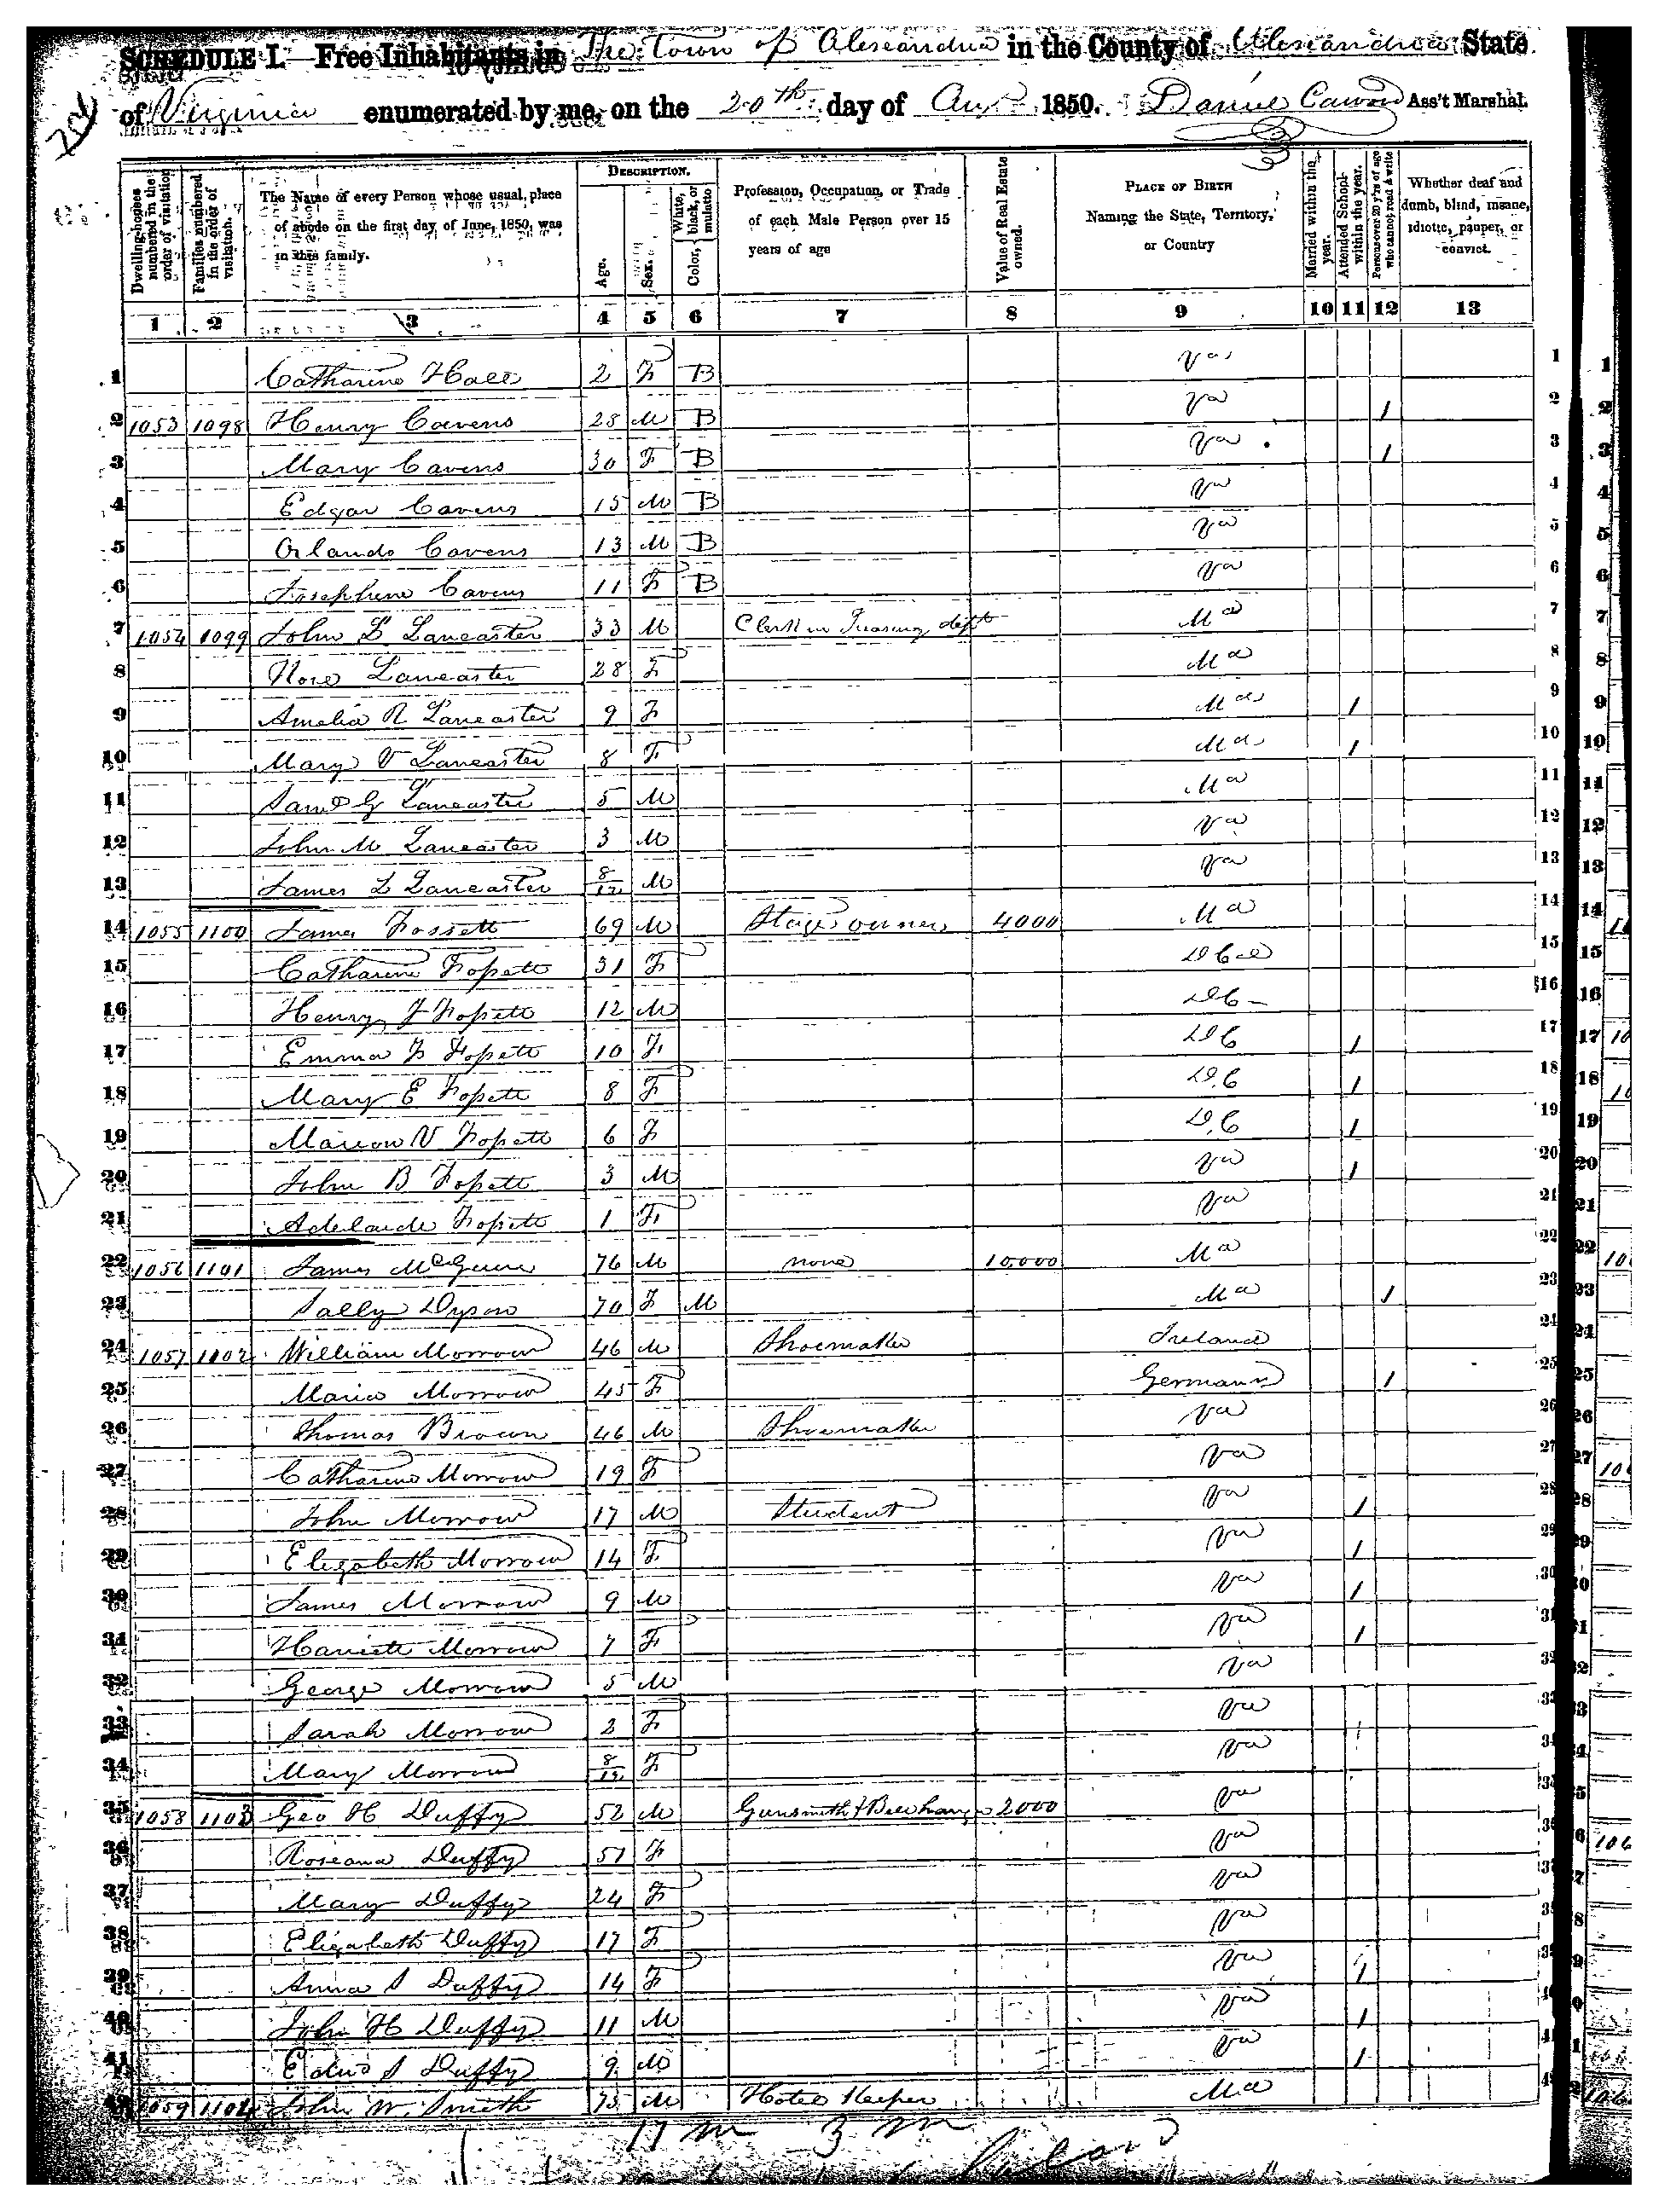 SCHEDULE I. Free Inhabitants in The Town of Alexandria in the County of Alexandria State
of Virginia enumerated by me, on the 20th day of Aug 1850. Ass't Marshal.
Dwelling-houses numbered in the order of visitation
Families numbered in the order of visitation.
The Name of every Person whose usual place of abode on the first day of June, 1850, was in this family.
DESCRIPTION.
Age.
Sex.
Color, White, black, or mulatto
Profession, Occupation, or Trade of each Male Person over 15 years of age
Value of Real Estate owned.
PLACE OF BIRTH Naming the State, Territory, or Country
Married within the year.
Attended School within the year.
Persons over 20 y'rs of age who cannot read & write
Whether deaf and dumb, blind, insane, idiotic, pauper, or convict.
1 2 3 4 5 6 7 8 9 10 11 12 13
1 Catharine Hall 2 F B Va 1
2 1053 1098 Henry Cavens 28 M B Va 1 2
3 Mary Cavens 30 F B Va 1 3
4 Edgar Cavens 15 M B Va 4
5 Orlando Cavens 13 M B Va 5
6 Josephine Cavens 11 F B Va 6
7 1054 1099 John L Lancaster 33 M Clerk in Treasury dept Md 7
8 Lancaster 28 F Md 8
9 Amelia R Lancaster 9 F Md 1 9
10 Mary V Lancaster 8 F Md 1 10
11 Saml G Lancaster 5 M Md 11
12 John M Lancaster 3 M Va 12
13 James L Lancaster 8/12 M Va 13
14 1055 1100 James Fossett 69 M Stage owner 4000 Md 14
15 Catharine Fossett 31 F D C 15
16 Henry F Fossett 12 M D C 16
17 Emma F Fossett 10 F D C 1 17
18 Mary E Fossett 8 F D.C 1 18
19 Marion V Fossett 6 F D.C 1 19
20 John B Fossett 3 M Va 1 20
21 Adelaide Fossett 1 F Va 21
22 1056 1101 James McGuire 76 M none 10,000 Md 22
23 Sally Dyson 70 F M Md 1 23
24 1057 1102 William Morrow 46 M Shoemaker Ireland 24
25 Maria Morrow 45 F Germany 1 25
26 Thomas Brown 46 M Shoemaker Va 26
27 Catharine Morrow 19 F Va 27
28 John Morrow 17 M Student Va 1 28
29 Elizabeth Morrow 14 F Va 1 29
30 James Morrow 9 M Va 1 30
31 Harriett Morrow 7 F Va 1 31
32 George Morrow 5 M Va 32
33 Sarah Morrow 2 F Va
34 Mary Morrow 8/12 F Va
35 1058 1103 Geo H Duffy 52 M Gunsmith & Bellhanger 2000 Va
36 Roseana Duffy 51 F Va
37 Mary Duffy 24 F Va
38 Elizabeth Duffy 17 F Va
39 Anna S Duffy 14 F Va 1
40 John H Duffy 11 M Va 1
41 Edwd S Duffy 9 M Va 1
42 1059 1104 John W. Smith 75 M Hotel Keeper Md
17 m 3 m